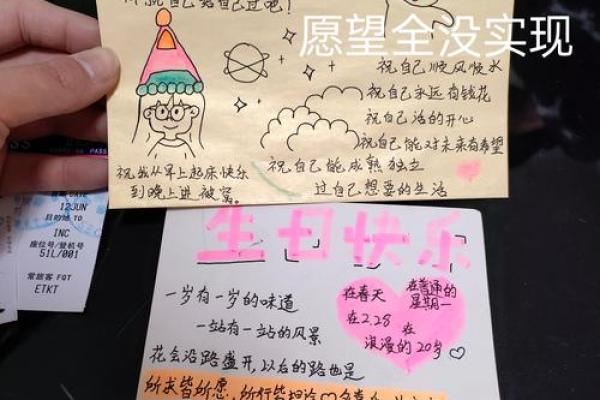 愿望全没实现
祝自己顺风顺水
祝自己永远有钱花
祝自己活的开心
祝自己能对未来有希望
祝自己能成熟独立
过自己想要的生活
祝我从早上起床快乐
到晚上进被窝。
PASS
12JUN
目的地 TO
INC
座位号/登机号
51L/001
常旅客 FQT
ETKT
生日快乐
一岁有一岁的味道
一站有一站的风景
花会沿路盛开,以后的路也是
所求皆所愿,所行皆坦途
在春天
在普通的
星期一
在2.28
在
浪漫的20岁